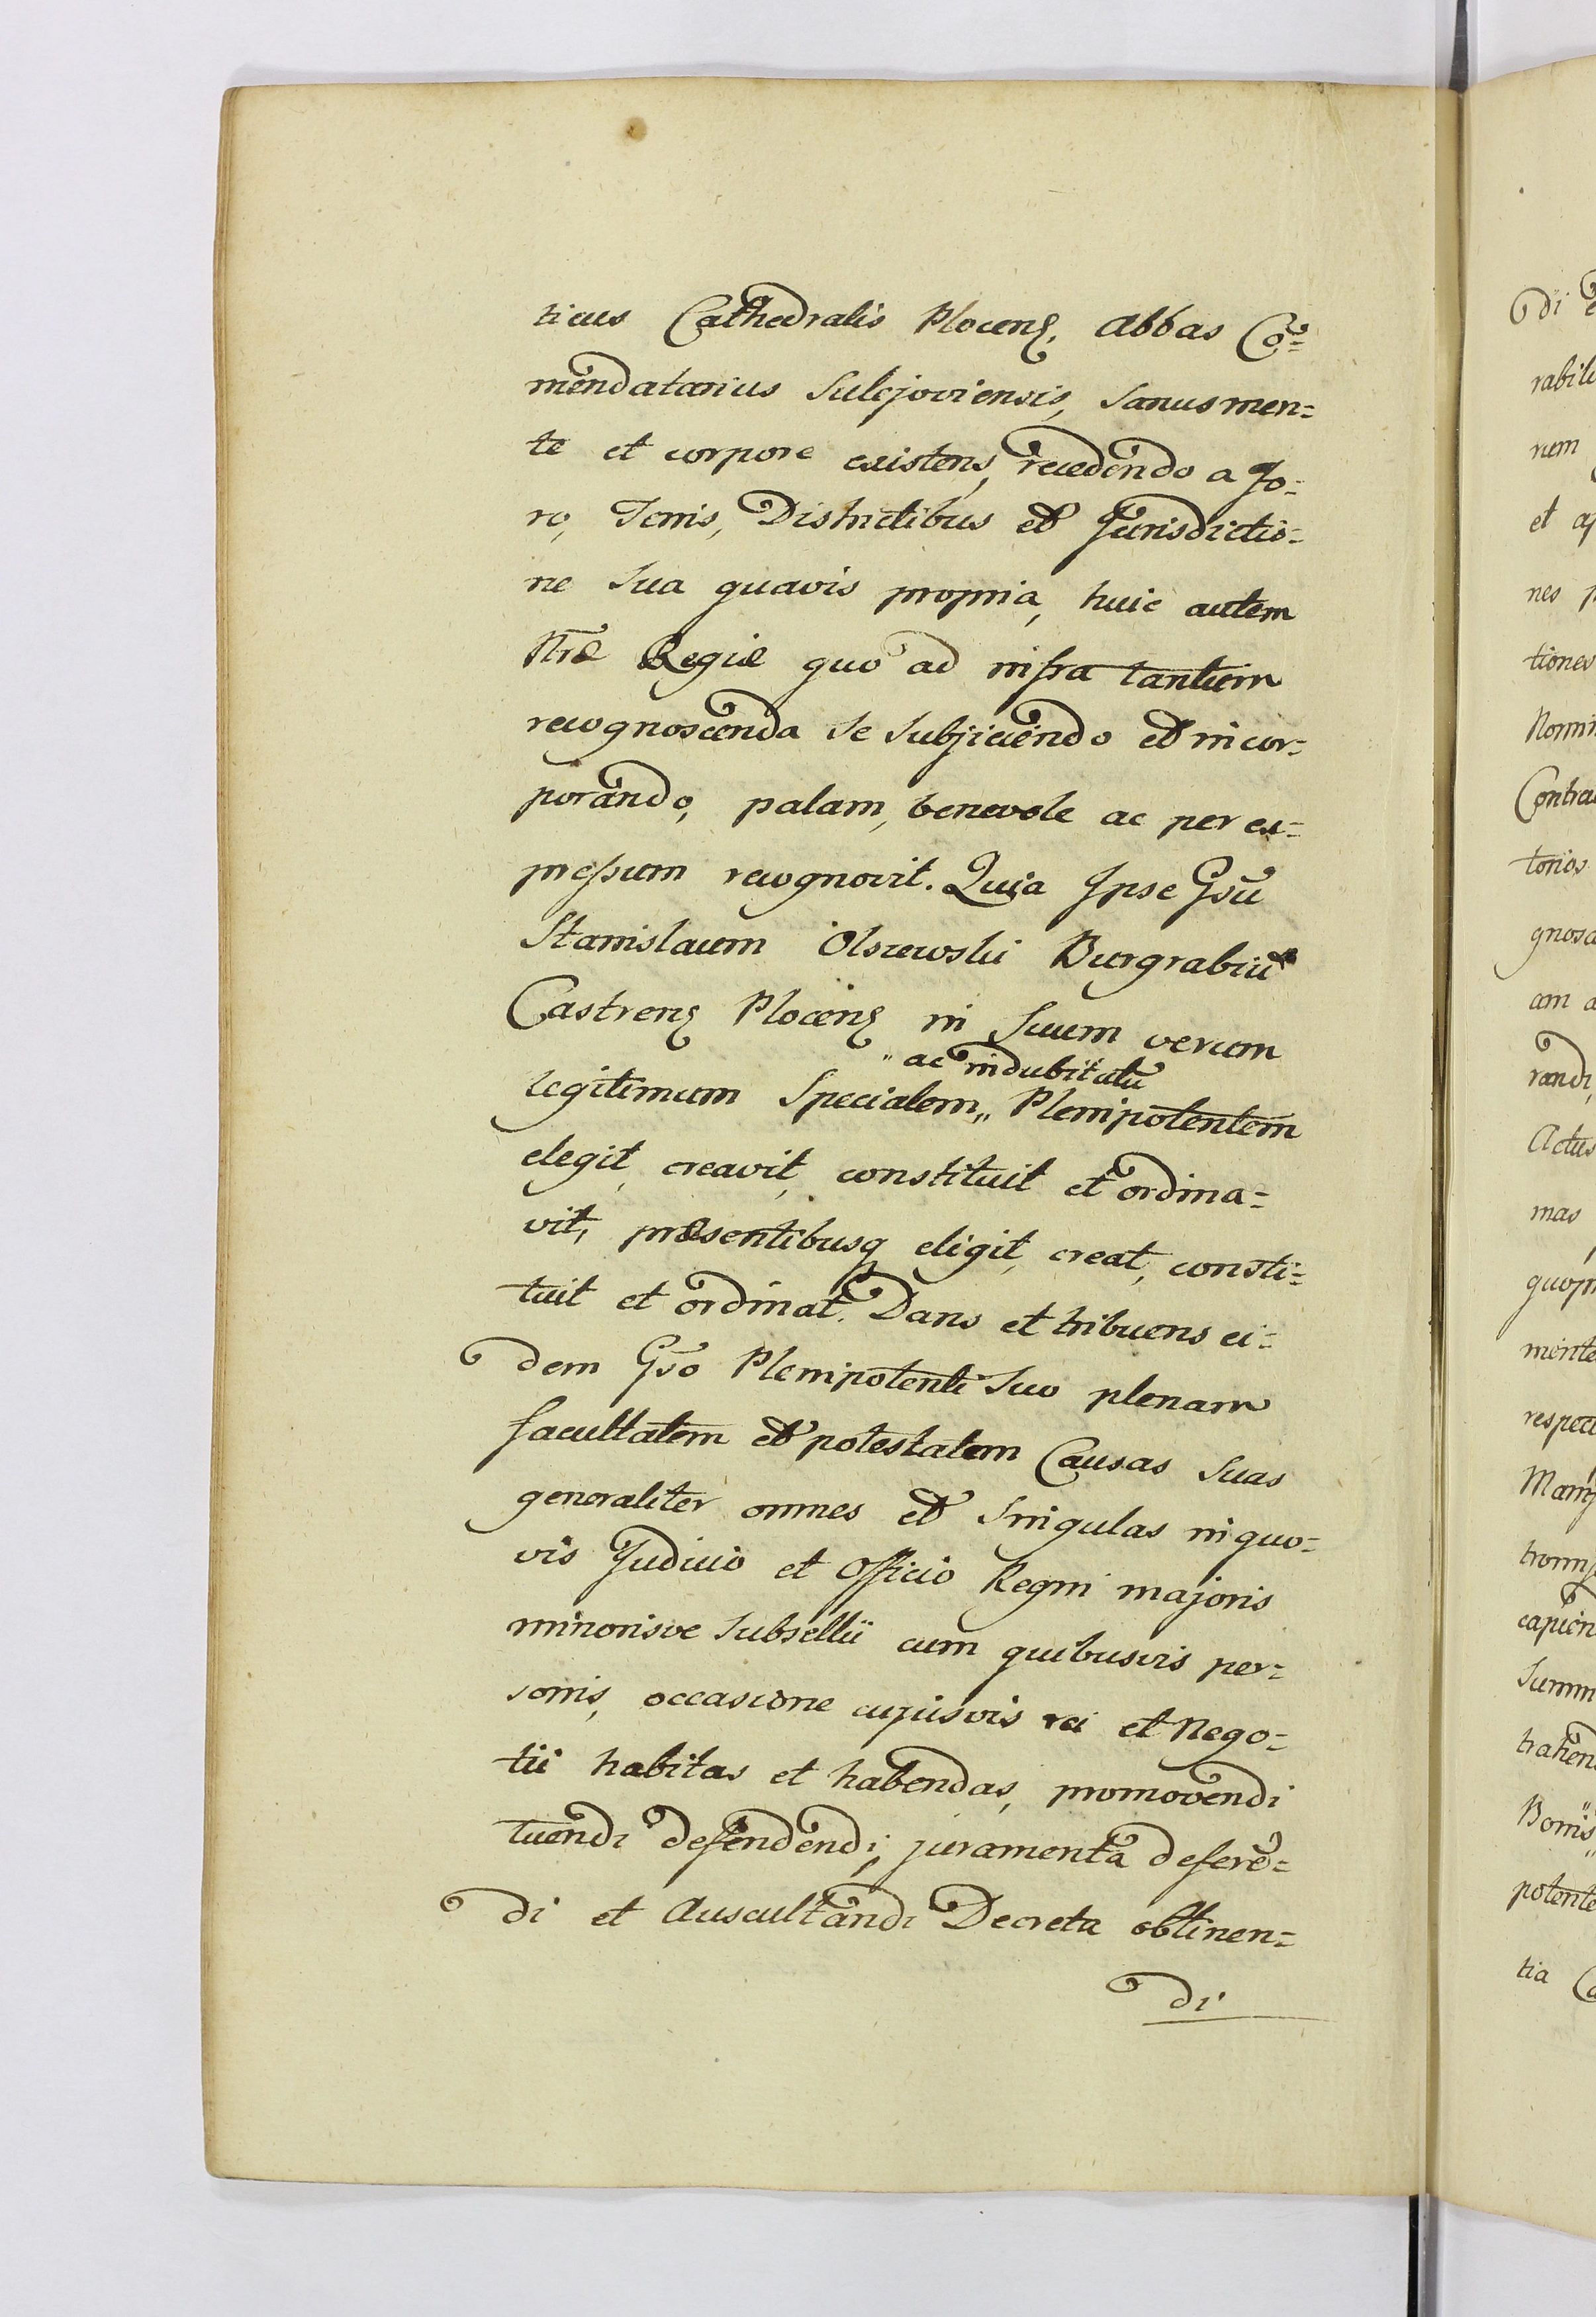 ticus Cathedralis Plocens. Abbas Co=
mendatarius Sulejoviensis, Sanus men=
te et corpore existens, recedendo a Fo=
ro, Terris, Districtibus et Jurisdictio=
ne Sua quavis propria, huic autem
Nræ Regiæ quo ad infra tantum
recognoscenda Se Subjiciendo et incor=
porando, palam, benevole ac per ex=
pressum recognovit. Quia Ipse Gsũ
Stanislaum Olszewski Burgrabiũ
Castrens Plocens in Suum verum
" ac indubitatũ
legitimum Specialem,, Plenipotentem
elegit, creavit, constituit et ordina=
vit, præsentibusq eligit, creat, consti=
tuit et ordinat. Dans et tribuens ei=
dem Gso Plenipotenti Suo plenam
facultatem et potestatem Causas Suas
generaliter omnes et Singulas in quo=
vis Judicio et Officio Regni majoris
minorisve Subsellii cum quibusvis per=
sonis, occasione cujusvis rei et Nego=
tii habitas et habendas, promovendi
tuendi defendendi, juramenta deferẽ=
di et Auscultandi Decreta obtinen=
di
di
rabili
rum
et
nes
tiones
Contra
torios
gnosc
am
randi,
Actus
mas
mente
respec
capien
Summ
trahen
Bonis
potente
tia